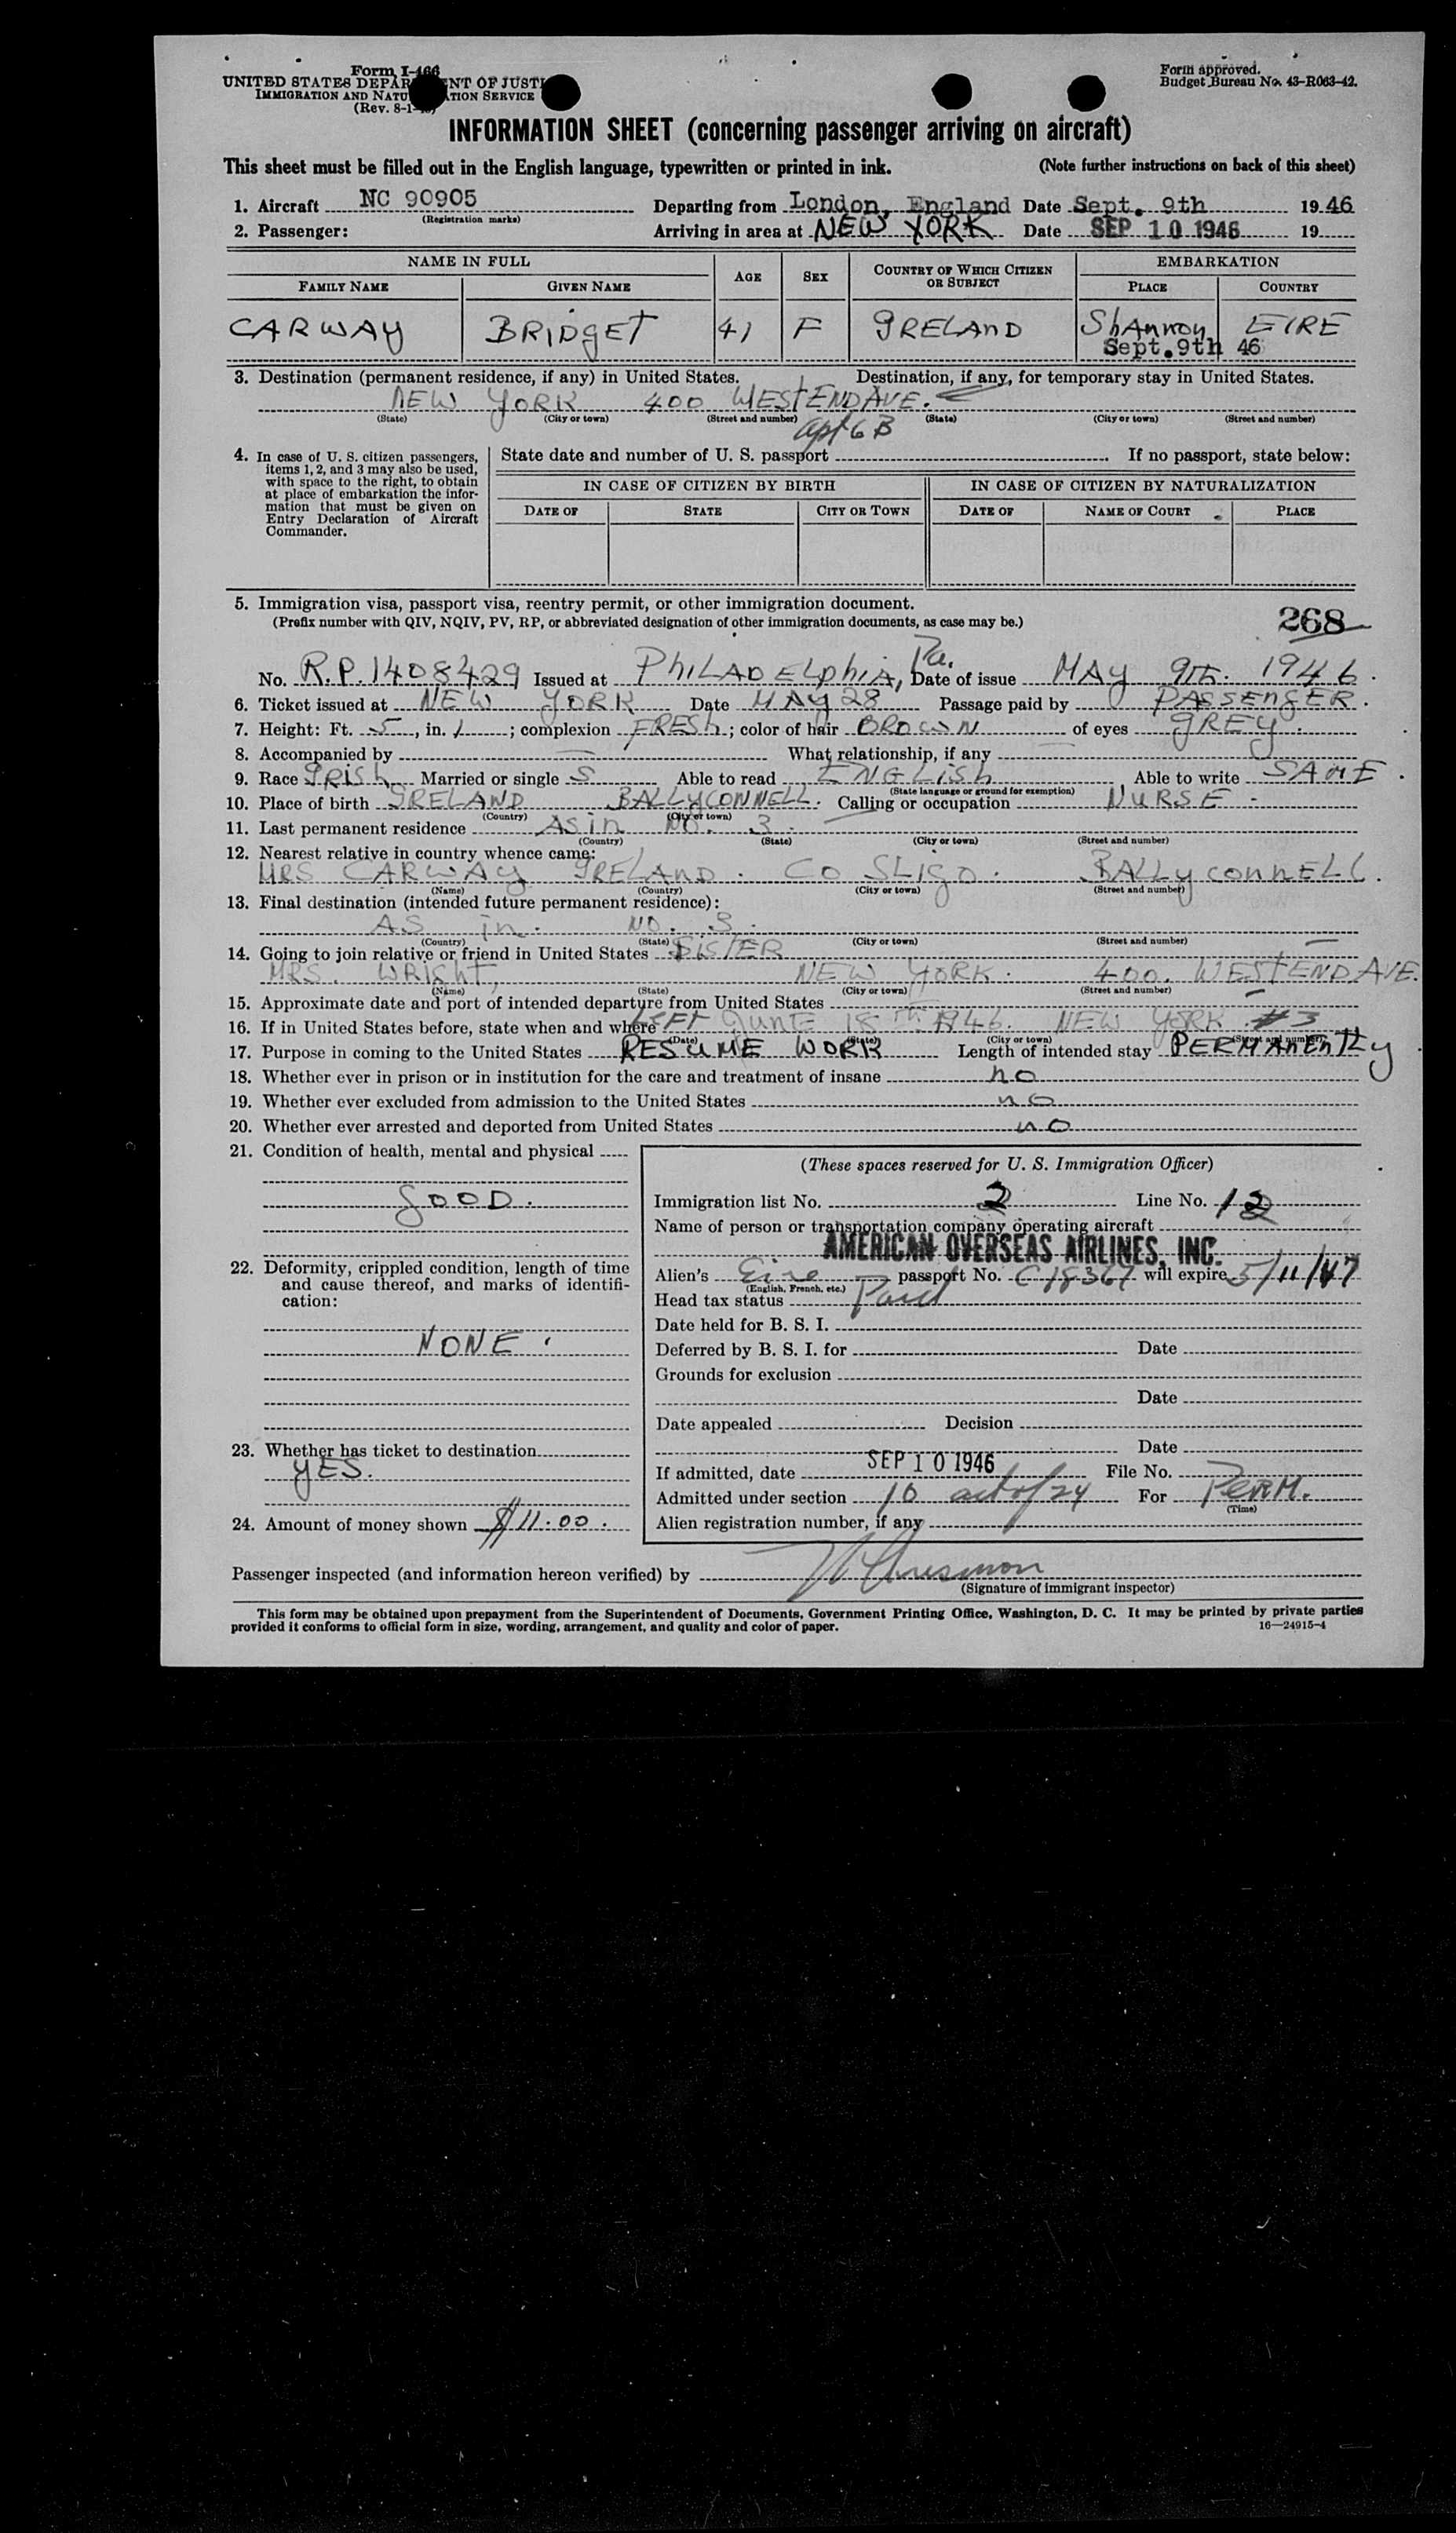 Form I-466
UNITED STATES DEPARTMENT OF JUSTICE
IMMIGRATION AND NATURALIZATION SERVICE
(Rev. 8-1-
Form approved.
Budget Bureau No. 43-R063-42.
INFORMATION SHEET (concerning passenger arriving on aircraft)
This sheet must be filled out in the English language, typewritten or printed in ink. (Note further instructions on back of this sheet)
1. Aircraft NC 90905 Departing from London, England Date Sept. 9th 19 46
(Registration marks)
2. Passenger: Arriving in area at NEW YORK Date SEP 10 1946 19
NAME IN FULL AGE SEX COUNTRY OF WHICH CITIZEN OR SUBJECT EMBARKATION
FAMILY NAME GIVEN NAME PLACE COUNTRY
CARWAY BRIDGET 41 F IRELAND Shannon EIRE
Sept.9th 46
3. Destination (permanent residence, if any) in United States. Destination, if any, for temporary stay in United States.
NEW YORK 400 WEST END AVE.
(State) (City or town) (Street and number) (State) (City or town) (Street and number)
apt 6 B
4. In case of U. S. citizen passengers, items 1, 2, and 3 may also be used, with space to the right, to obtain at place of embarkation the information that must be given on Entry Declaration of Aircraft Commander.
State date and number of U. S. passport If no passport, state below:
IN CASE OF CITIZEN BY BIRTH IN CASE OF CITIZEN BY NATURALIZATION
DATE OF STATE CITY OR TOWN DATE OF NAME OF COURT PLACE
5. Immigration visa, passport visa, reentry permit, or other immigration document.
(Prefix number with QIV, NQIV, PV, RP, or abbreviated designation of other immigration documents, as case may be.)
268
No. R.P.1408429 Issued at PHILADELPHIA, Pa. Date of issue MAY 9TH. 1946.
6. Ticket issued at NEW YORK Date MAY 28 Passage paid by PASSENGER.
7. Height: Ft. 5, in. 1; complexion FRESH; color of hair BROWN of eyes GREY.
8. Accompanied by — What relationship, if any —
9. Race IRISH Married or single S Able to read ENGLISH Able to write SAME.
(State language or ground for exemption)
10. Place of birth IRELAND BALLYCONNELL. Calling or occupation NURSE -
(Country) (City or town)
11. Last permanent residence AS in NO. 3.
(Country) (State) (City or town) (Street and number)
12. Nearest relative in country whence came:
MRS CARWAY IRELAND. CO SLIGO. BALLYCONNELL.
(Name) (Country) (City or town) (Street and number)
13. Final destination (intended future permanent residence):
AS in. NO. 3.
(Country) (State) (City or town) (Street and number)
14. Going to join relative or friend in United States SISTER
MRS. WRIGHT, NEW YORK. 400. WEST END AVE.
(Name) (State) (City or town) (Street and number)
15. Approximate date and port of intended departure from United States —
16. If in United States before, state when and where LEFT JUNE 18TH 1946. NEW YORK #3
(Date) (State) (City or town) (Street and number)
17. Purpose in coming to the United States RESUME WORK Length of intended stay PERMANENTLY
18. Whether ever in prison or in institution for the care and treatment of insane no
19. Whether ever excluded from admission to the United States no
20. Whether ever arrested and deported from United States no
21. Condition of health, mental and physical
GOOD.
22. Deformity, crippled condition, length of time and cause thereof, and marks of identification:
NONE.
23. Whether has ticket to destination
YES.
24. Amount of money shown $11.00.
(These spaces reserved for U. S. Immigration Officer)
Immigration list No. 2 Line No. 12
Name of person or transportation company operating aircraft
AMERICAN OVERSEAS AIRLINES, INC.
Alien's Eire passport No. C 18367 will expire 5/11/47
(English, French, etc.)
Head tax status Paid
Date held for B. S. I.
Deferred by B. S. I. for Date
Grounds for exclusion
Date
Date appealed Decision
Date
If admitted, date SEP 10 1946 File No.
Admitted under section 10 act of 24 For PERM.
(Time)
Alien registration number, if any
Passenger inspected (and information hereon verified) by
(Signature of immigrant inspector)
This form may be obtained upon prepayment from the Superintendent of Documents, Government Printing Office, Washington, D. C. It may be printed by private parties
provided it conforms to official form in size, wording, arrangement, and quality and color of paper. 16—24915-4